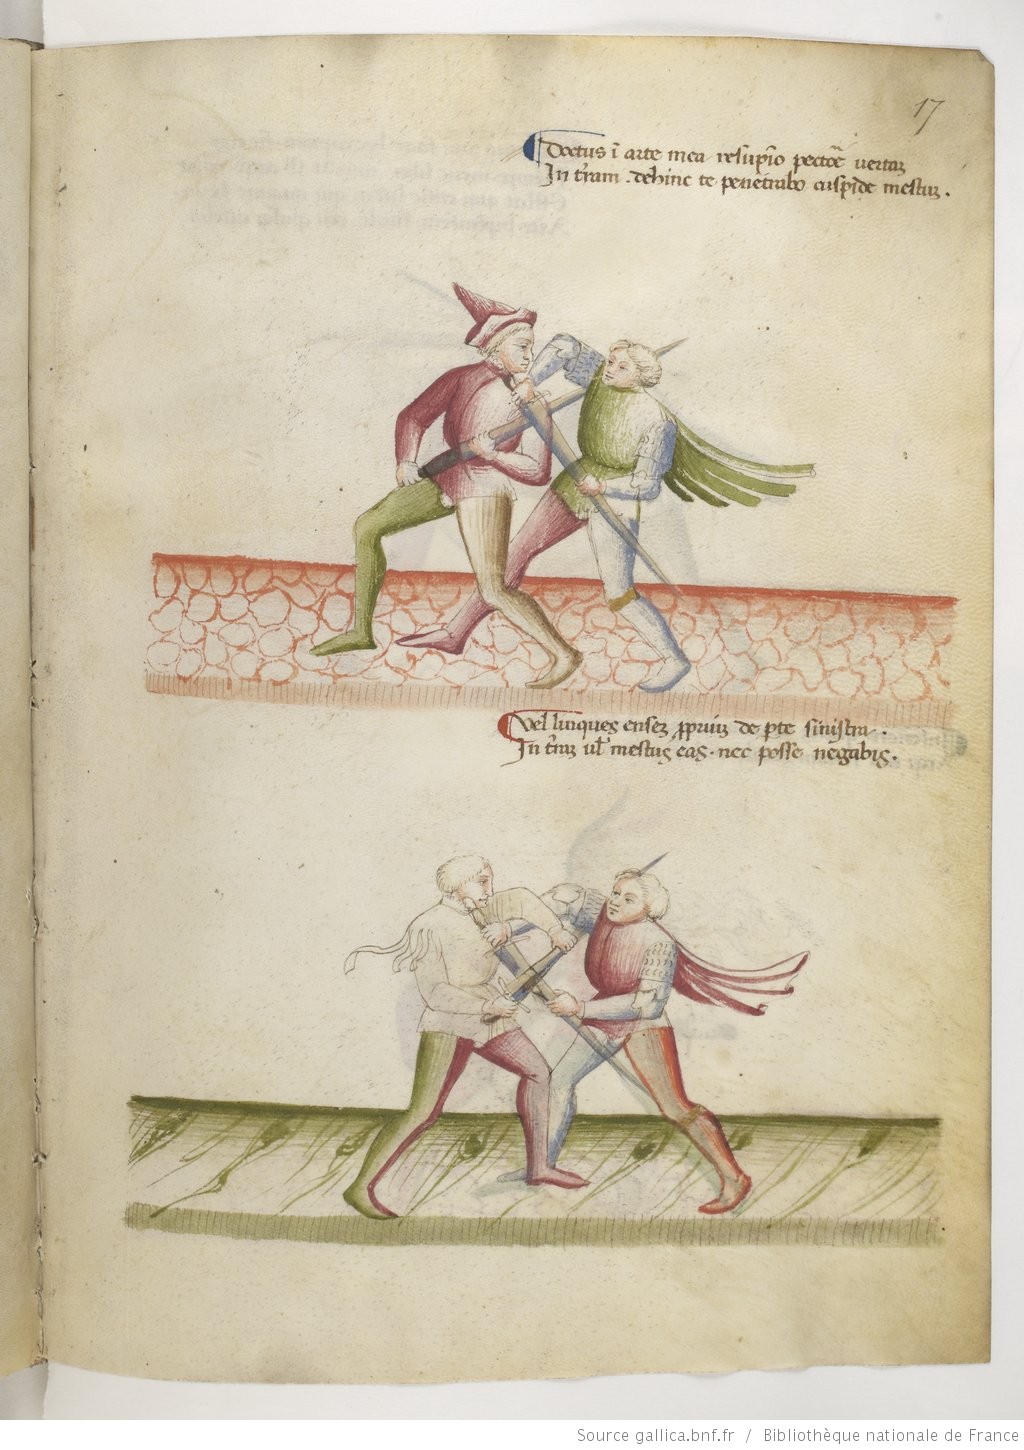 17
Doctus ī arte mea resupīo pectore uertaȝ
In t̄ram . dehinc te penetrabo cuspide mestuȝ .
Vel linques ensem ꝓpriuȝ de pte sinistra .
In t̄raȝ ul̄ mestus eas . nec posse negabis .
Source gallica.bnf.fr / Bibliothèque nationale de France